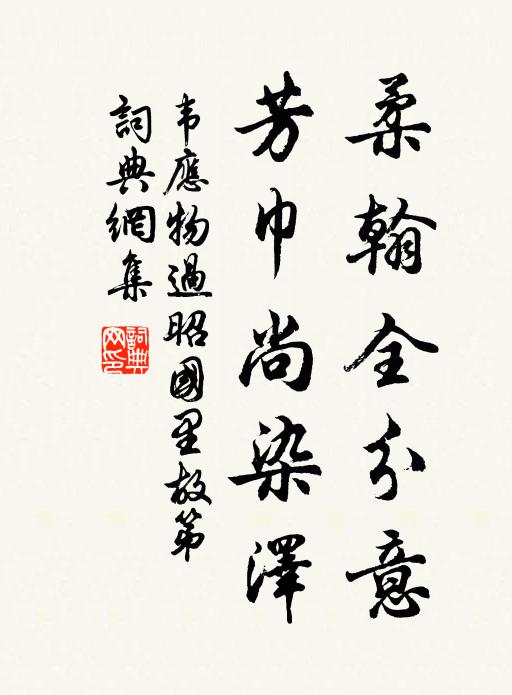 柔翰全分意
芳巾尚染澤
韦應物過昭國里故第
詞典網集
詞典网印